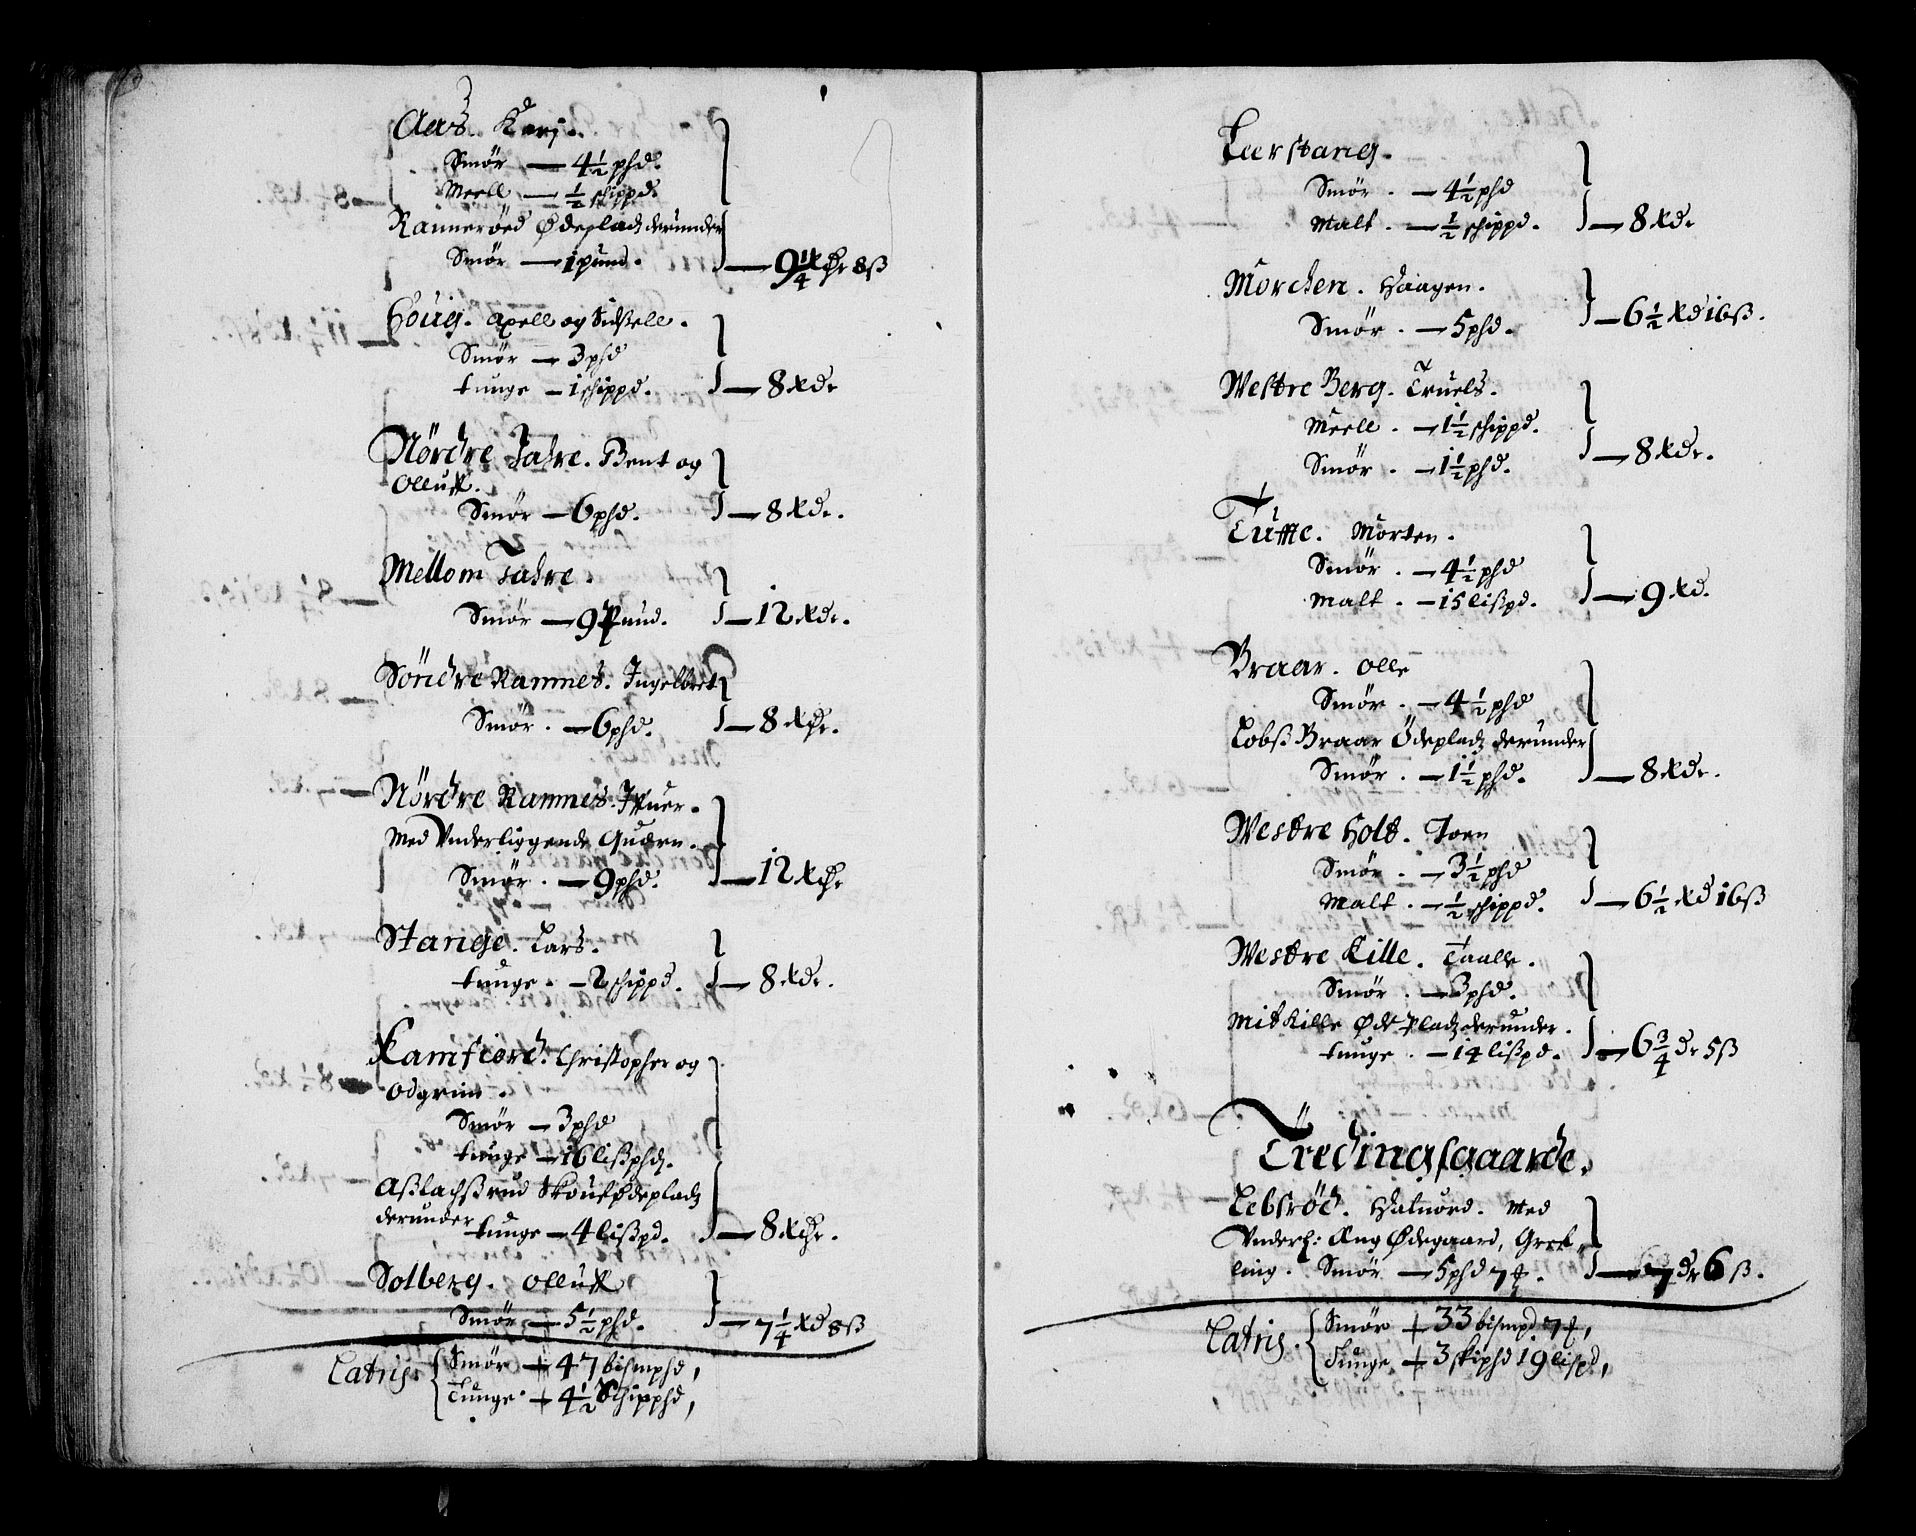 Aas. Karj.
Smör — 4½ phd.
Meell — ½ schippd.
Ranneröed Ödepladz derunder
Smör — 1 pund. — 9¼ Rdr 8ß
Houg. Axell og Sidsell.
Smör — 3 phd
tunge — 1 schippd. — 8 Rdr
Nördre Jahre. Bent og
Olluff.
Smör — 6 phd. — 8 Rdr.
Mellom Jahre.
Smör — 9 Pund. — 12 Rdr.
Söndre Ramnes. Ingebret
Smör. — 6 phd. — 8 Rdr.
Nördre Ramnes. Iffuer.
Med Vnderliggende Quern.
Smör. — 9 phd. — 12 Rdr
Stange. Lars.
tunge. — 2 schippd. — 8 Rdr.
Kamfiord. Christopher og
Odgrim.
Smör — 3 phd
tunge — 16 lißphd.
Aßlachßrud Skouf Ödepladz
derunder tunge — 4 lißpd. — 8 Rdr.
Solberg. Olluff
Smör — 5½ phd. — 7¼ Rd 8ß
Latris. Smör + 47 bismphd,
Tunge + 4½ Schipphd,
Leerstang.
Smör. — 4½ phd
Malt. — ½ schippd. — 8 Rdr
Morchen. Haagen.
Smör. — 5 phd. — 6½ Rd 16ß.
Westre Berg. Truels.
Meell. — 1½ schippd.
Smör. — 1½ phd. — 8 Rdr.
Tuffte. Morten.
Smör. — 4½ phd
Malt. — 15 lißpd. — 9 Rd.
Braar. Olle
Smör. — 4½ phd
Lobß Braar Ödepladz derunder
Smör. — 1½ phd. — 8 Rdr.
Westre Holt. Joen
Smör. — 3½ phd
Malt. — ½ schippd. — 6½ Rd 16ß
Westre Lille. Taale.
Smör. — 3 phd.
Mit Lille Öde Pladz derunder.
tunge. — 14 lißpd. — 6¾ dr 5ß
Tredingsgaarde.
Lebsröd. Haluord. Med
Vnderl: Ang Ödegaard, Gref-
ling. Smör — 5 phd 7 — 7 dr 6ß.
Latris. Smör + 33 bismpd 7,
Tunge + 3 skiphd 19 lispd,